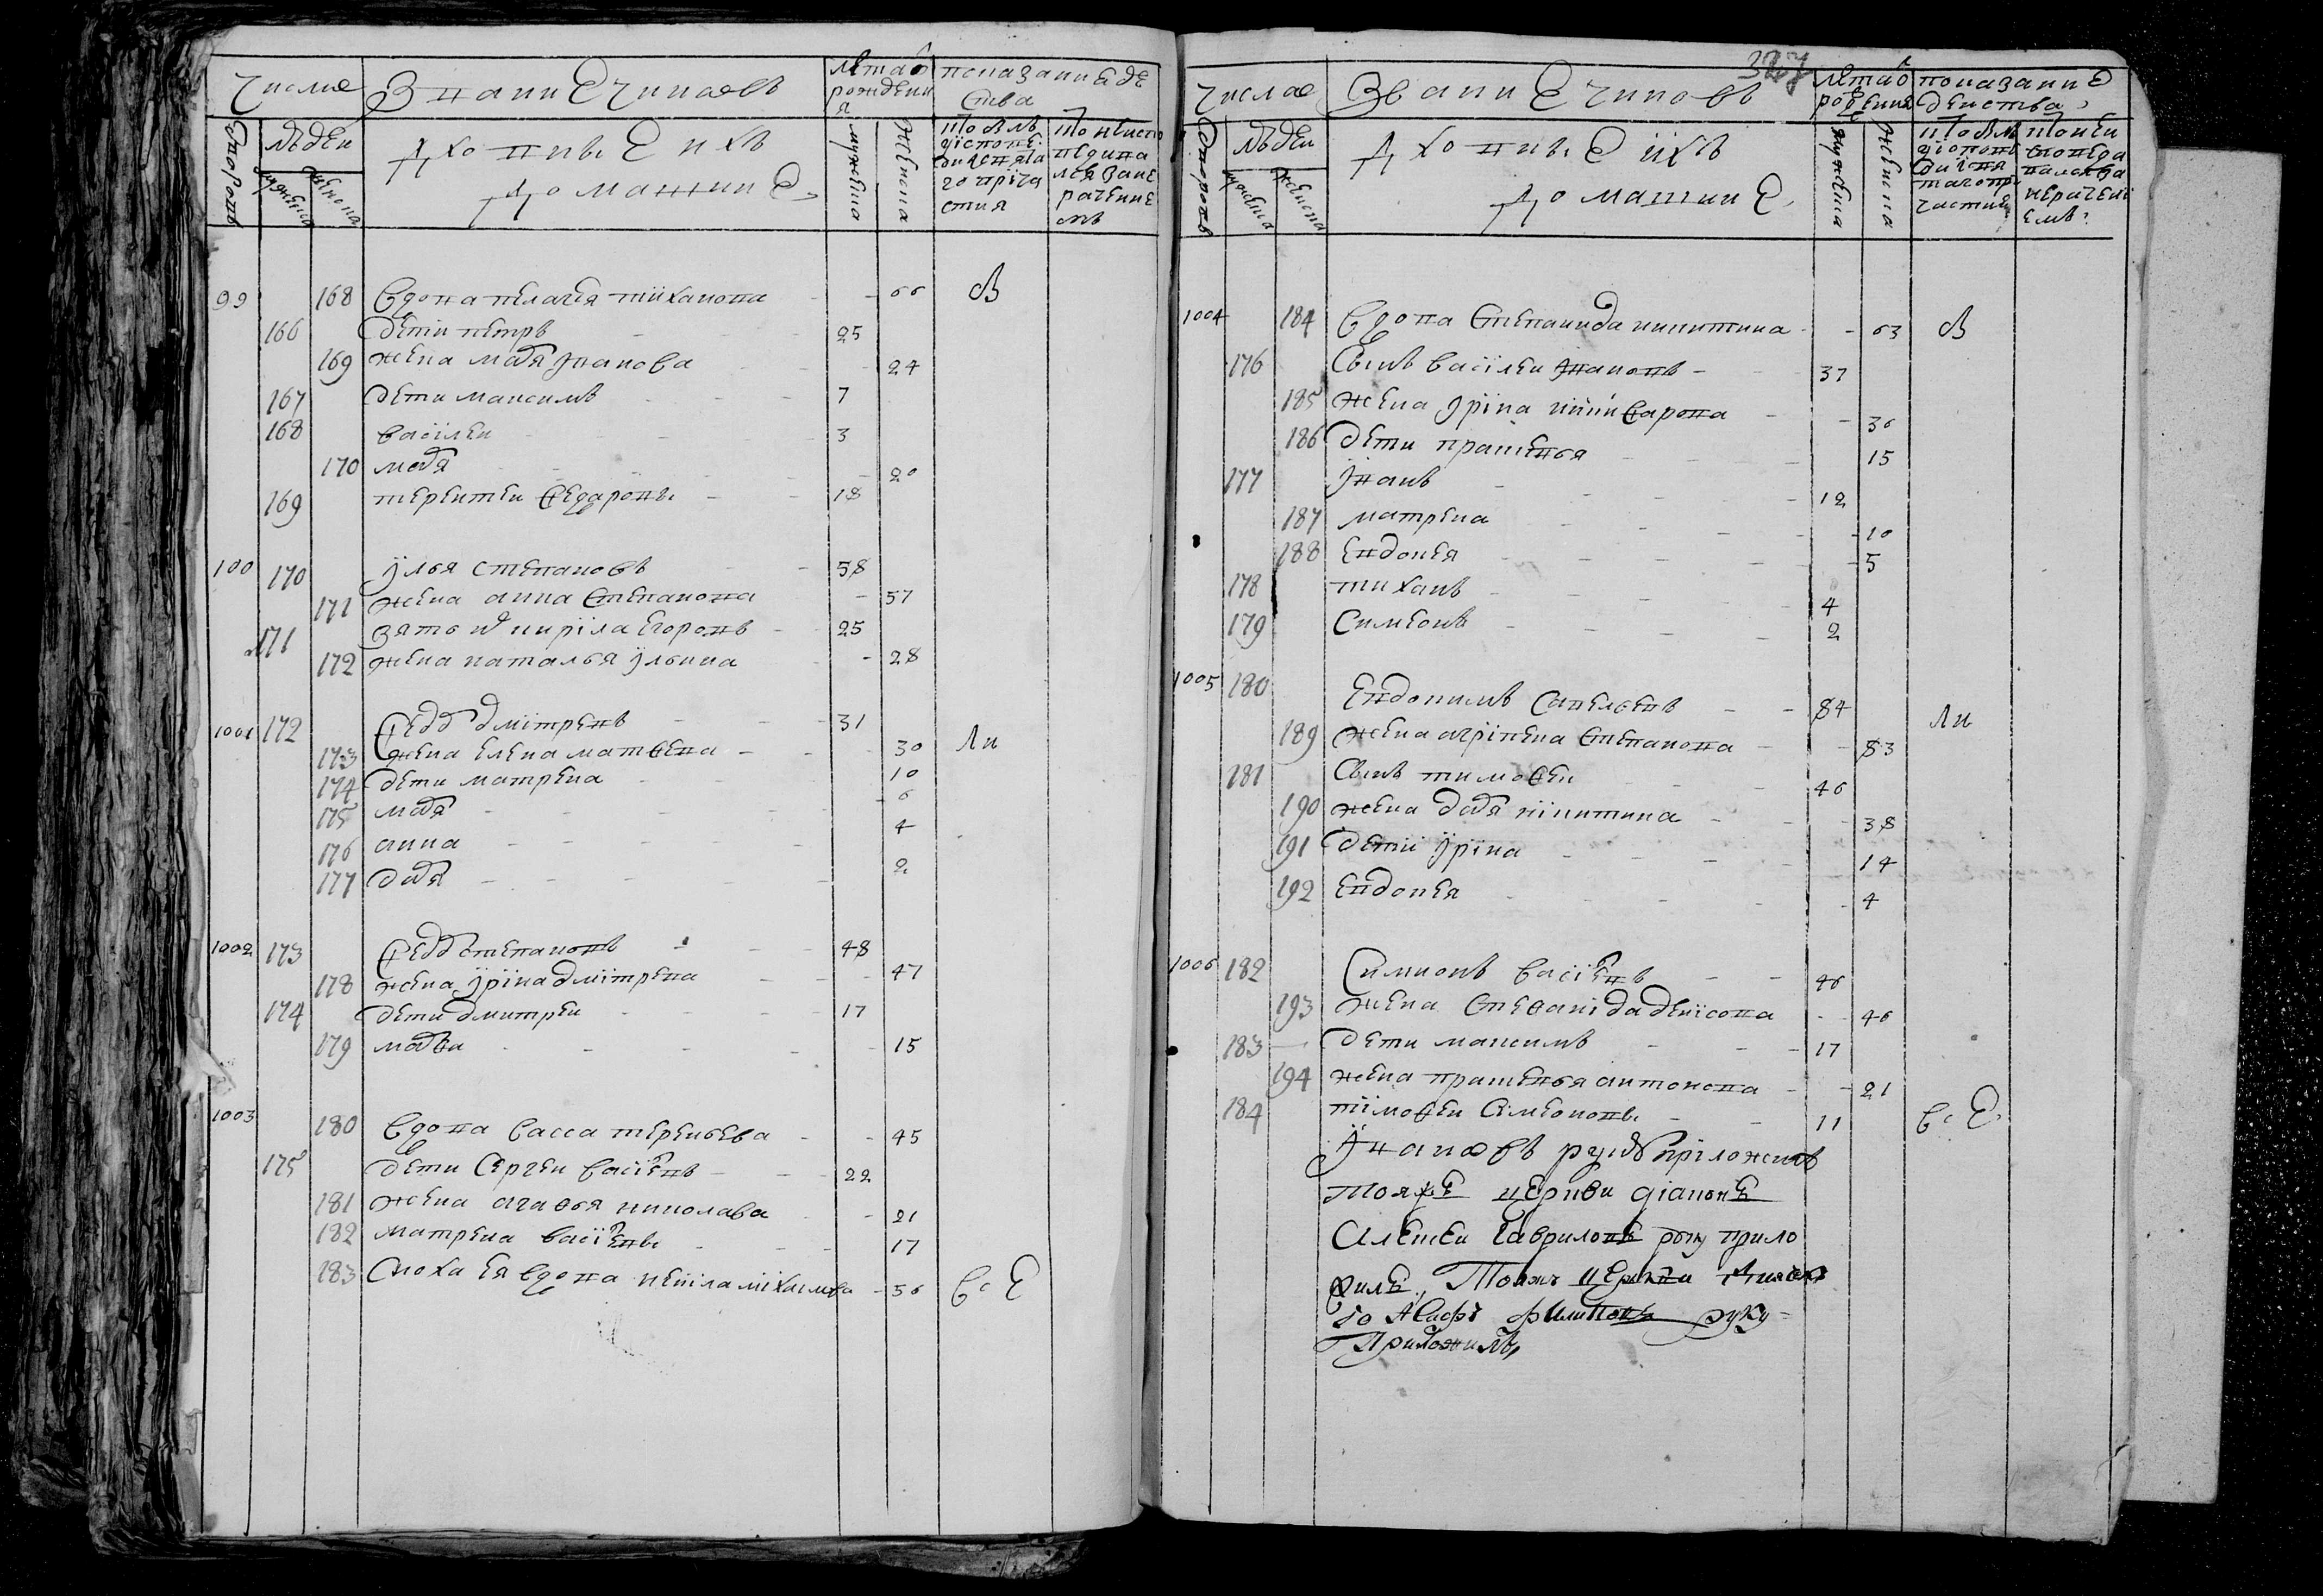 Число Звание чиновъ лѣта ѿ рождения показание дѣиства
дворовъ людеи мужеска женска Духовные и ихъ домашние мужеска женска
99 168 вдова пелагея тиханова 66 в
166 дети петръ 25
169 жена маря иванова 24
167 дети максимъ 7
168 василеи 3
170 маря 20
169 терентеи федаровы 18
100 170 илья степановъ 58
171 жена анна степанова 57
171 зять кирила егоровъ 25
172 жена наталья ильина 28
1001 172 Федоръ дмитревъ 31
173 жена елена матфева 30 ли
174 дети матрена 10
175 маря 6
176 анна 4
177 даря 2
1002 173 Федоръ степановъ 48
178 жена ирина дмитрева 47
174 дети дмитреи 17
179 марфа 15
1003 180 вдова васса терентева 45
175 дети сергеи василевъ 22
181 жена агафья николава 21
182 матрена василевы 17
183 сноха ея вдова михаилова 56 всѣ
327
число Звание чиновъ лѣта ѿ рождения показание дѣиства
дворовъ людеи мужеска женска Духовные и ихъ домашние мужеска женска
1004 184 вдова степанида никитина 63 в
176 сынъ василеи ивановъ 37
185 жена ирина никифарова 36
186 дети прасковья 15
177 иванъ 12
187 матрена 10
188 евдокея 5
178 тиханъ 4
179 симеонъ 2
1005 180 Евдокимъ савельевъ 84 ли
189 жена агрипена степанова 83
181 сынъ тимофеи 46
190 жена даря никитина 38
191 дети ирина 14
192 евдокея 4
1006 182 Симионъ василевъ 46
193 жена стефанида денисова 46
183 дети максимъ 17
194 жена прасковья антонова 21
184 тимофеи симеоновы 11 всѣ
Ивановъ руку приложилъ
тояже церкви диаконъ
Алексеи Гавриловъ руку прило
жилъ Тояжъ церкви
филиповъ руку
Приложилъ